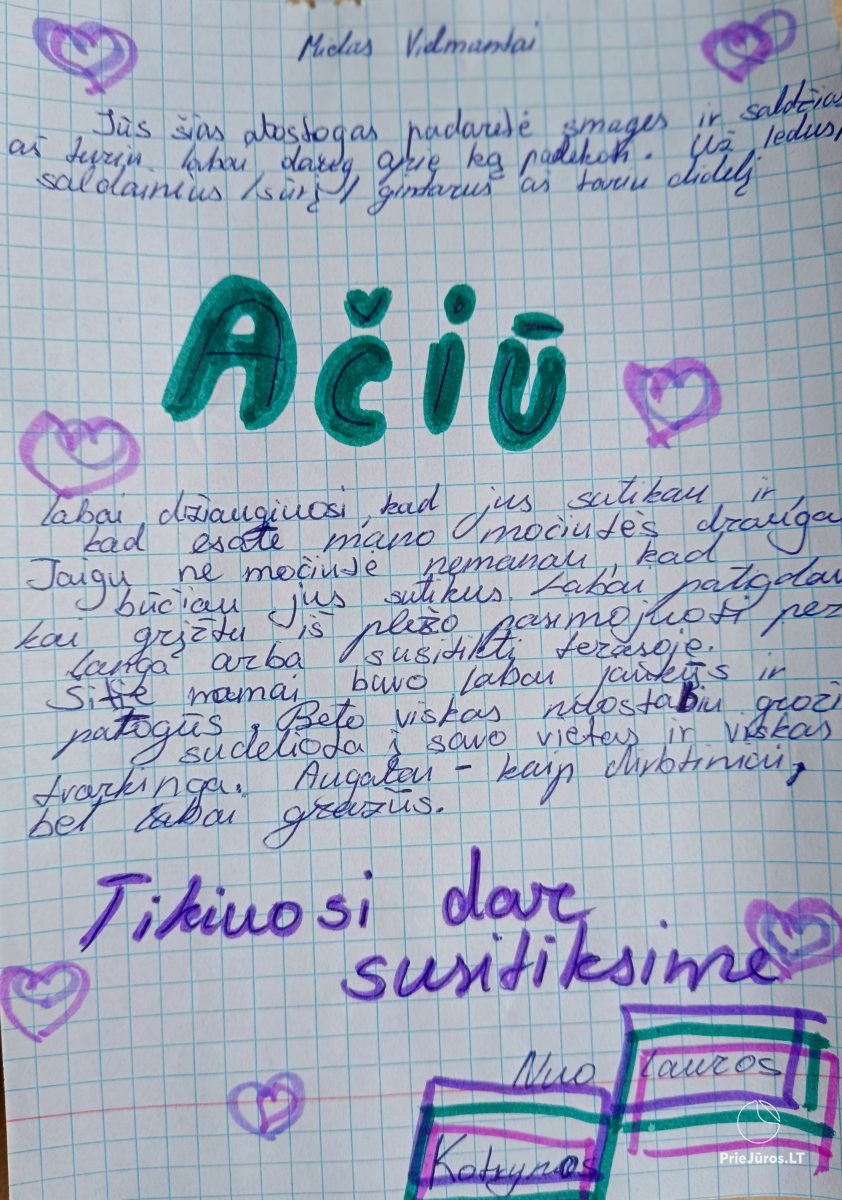 Mielas Vidmantai
Jūs šias atostogas padarėtė smages ir saldžias
aš turiu labai daug apie ką padėkoti. Už ledus,
saldainius, sūrį, gintarus aš tariu didelį
Ačiū
Labai džiaugiuosi, kad jus sutikau ir,
kad esate mano močiutės drauga
Jaigu ne močiutė nemanau, kad
būčiau jus sutikus. Labai patigdau
kai grįžtu iš plėžo pasimojuoti per
langa arba susitikti terasoje.
mamai buvo labai jaukūs ir
patogūs. Beto viskas nuostabiu groži
sudeliota į savo vietas ir viskas
tvarkinga. Augalai - kaip dirbtiniai,
bet labai grazūs.
Tikiuosi dar
susitiksime
Nuo Lauros
Kotrynos
PrieJūros.LT